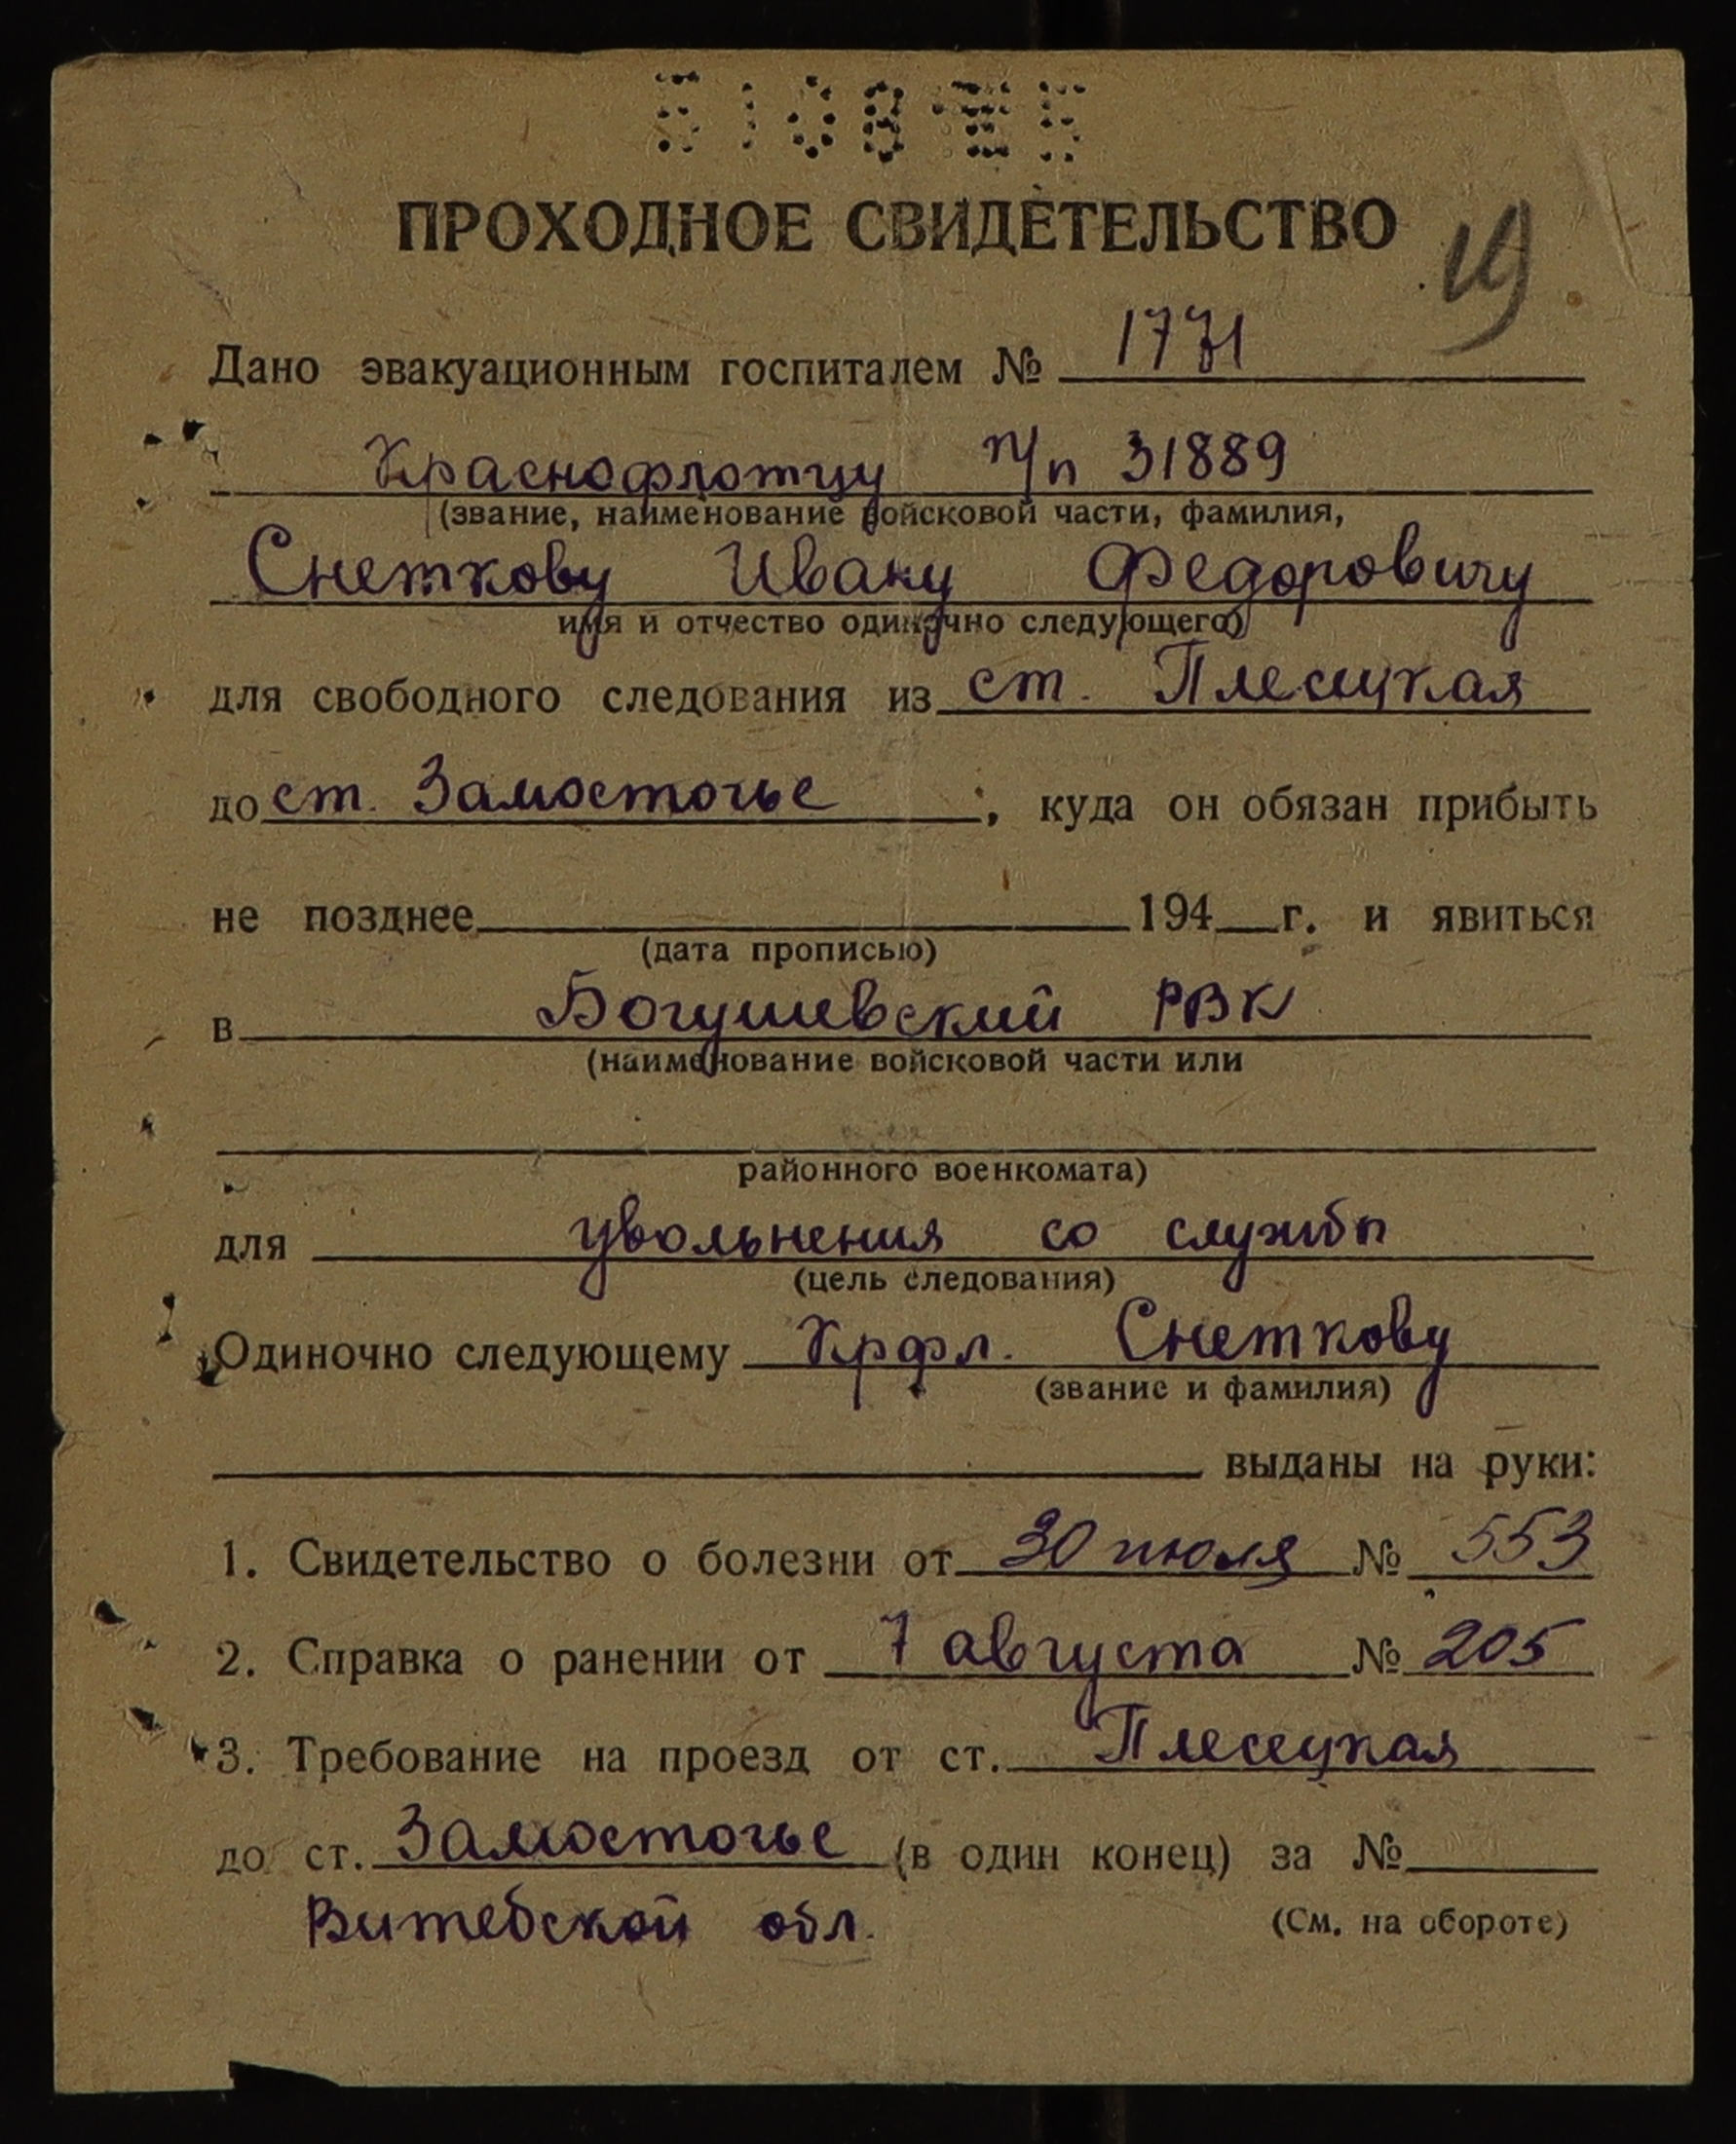 ПРОХОДНОЕ СВИДЕТЕЛЬСТВО
19
Дано эвакуационным госпиталем № 1771
Краснофлотцу п/п 31889
(звание, наименование войсковой части, фамилия,
Снеткову Ивану Федоровичу
имя и отчество одиночно следующего)
для свободного следования из ст. Плесецкая
до ст. Замосточье , куда он обязан прибыть
не позднее 194 г. и явиться
(дата прописью)
в Богушевский РВК
(наименование войсковой части или
районного военкомата)
для увольнения со службы
(цель следования)
Одиночно следующему Крфл. Снеткову
(звание и фамилия)
выданы на руки:
1. Свидетельство о болезни от 30 июля № 553
2. Справка о ранении от 7 августа № 205
3. Требование на проезд от ст. Плесецкая
до ст. Замосточье (в один конец) за №
Витебской обл.
(См. на обороте)